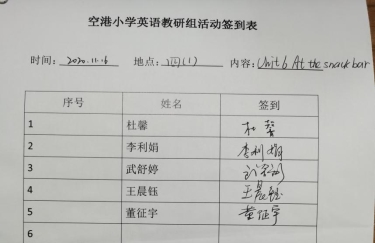 空港小学英语教研组活动签到表
时间：2020.11.6 地点：四(1) 内容：Unit 6 At the snack bar
序号 姓名 签到
1 杜馨 杜馨
2 李利娟 李利娟
3 武舒婷
4 王晨钰 王晨钰
5 董征宇 董征宇
6